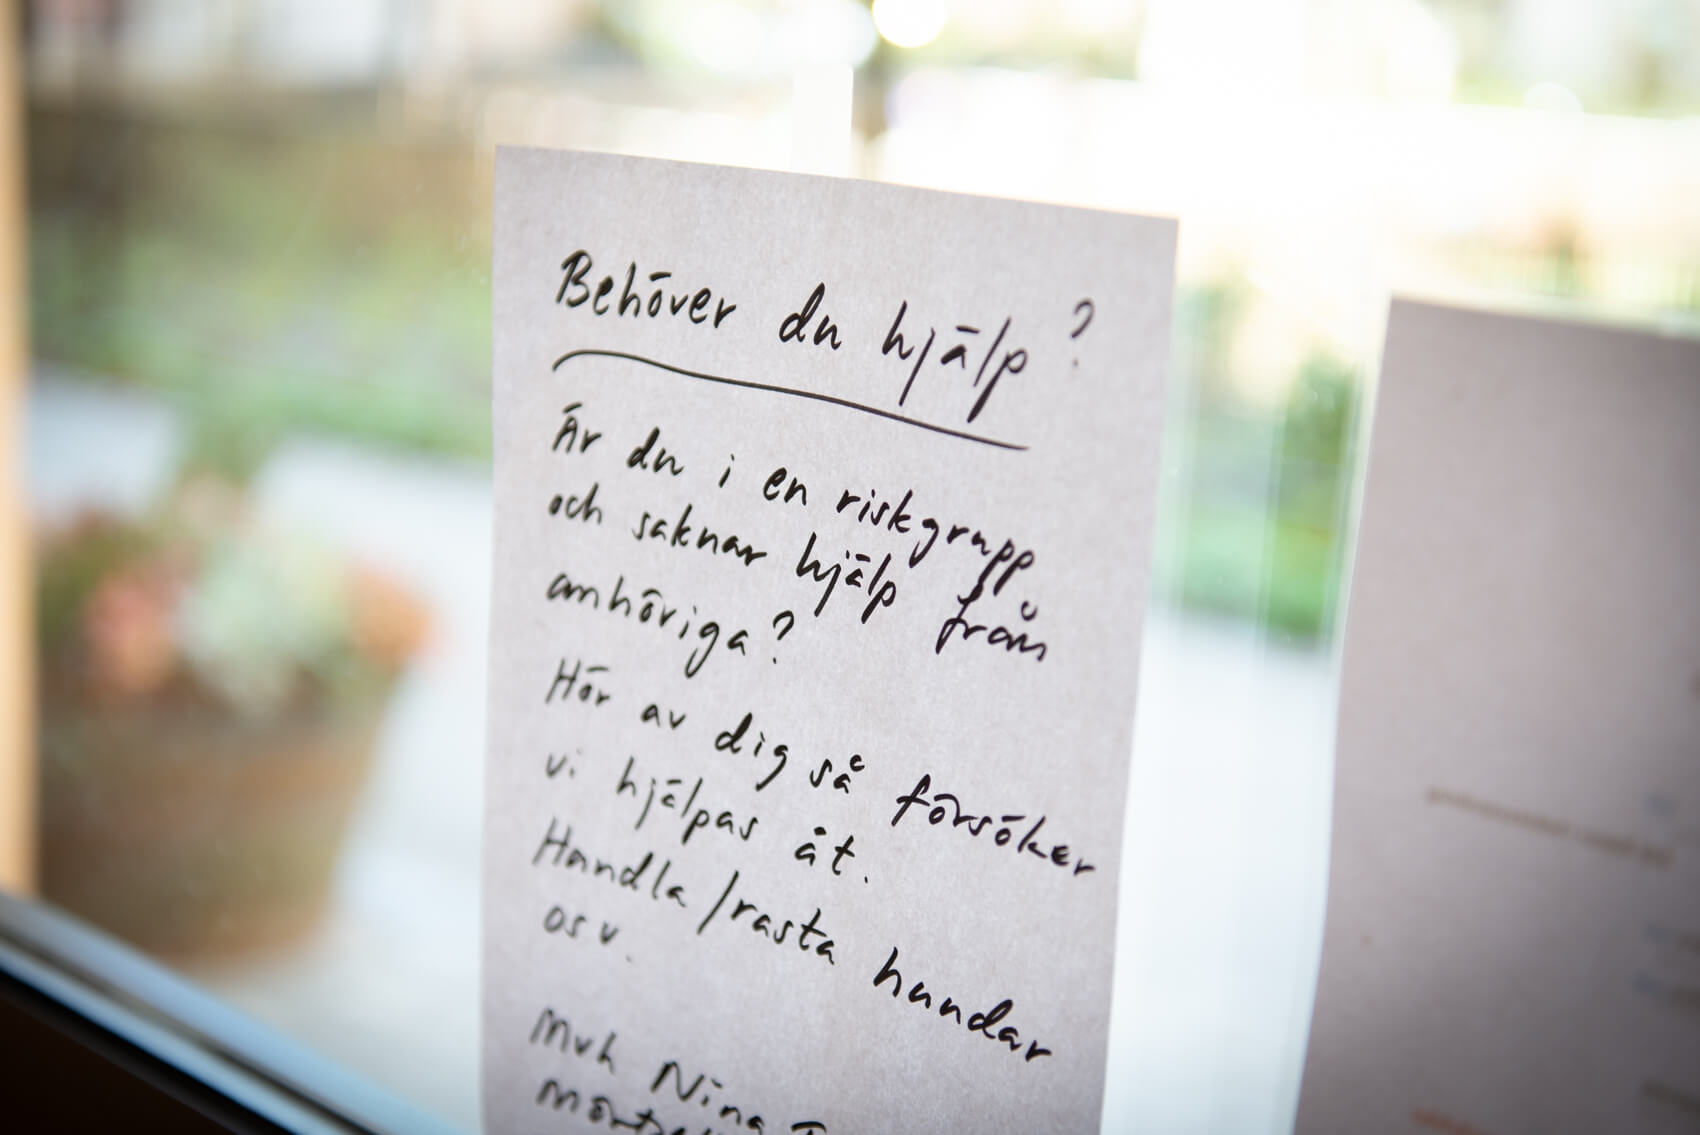 Behöver du hjälp?
Är du i en riskgrupp
och saknar hjälp från
anhöriga?
Hör av dig så försöker
vi hjälpas åt.
Handla/rasta hundar
osv.
Mvh Nina